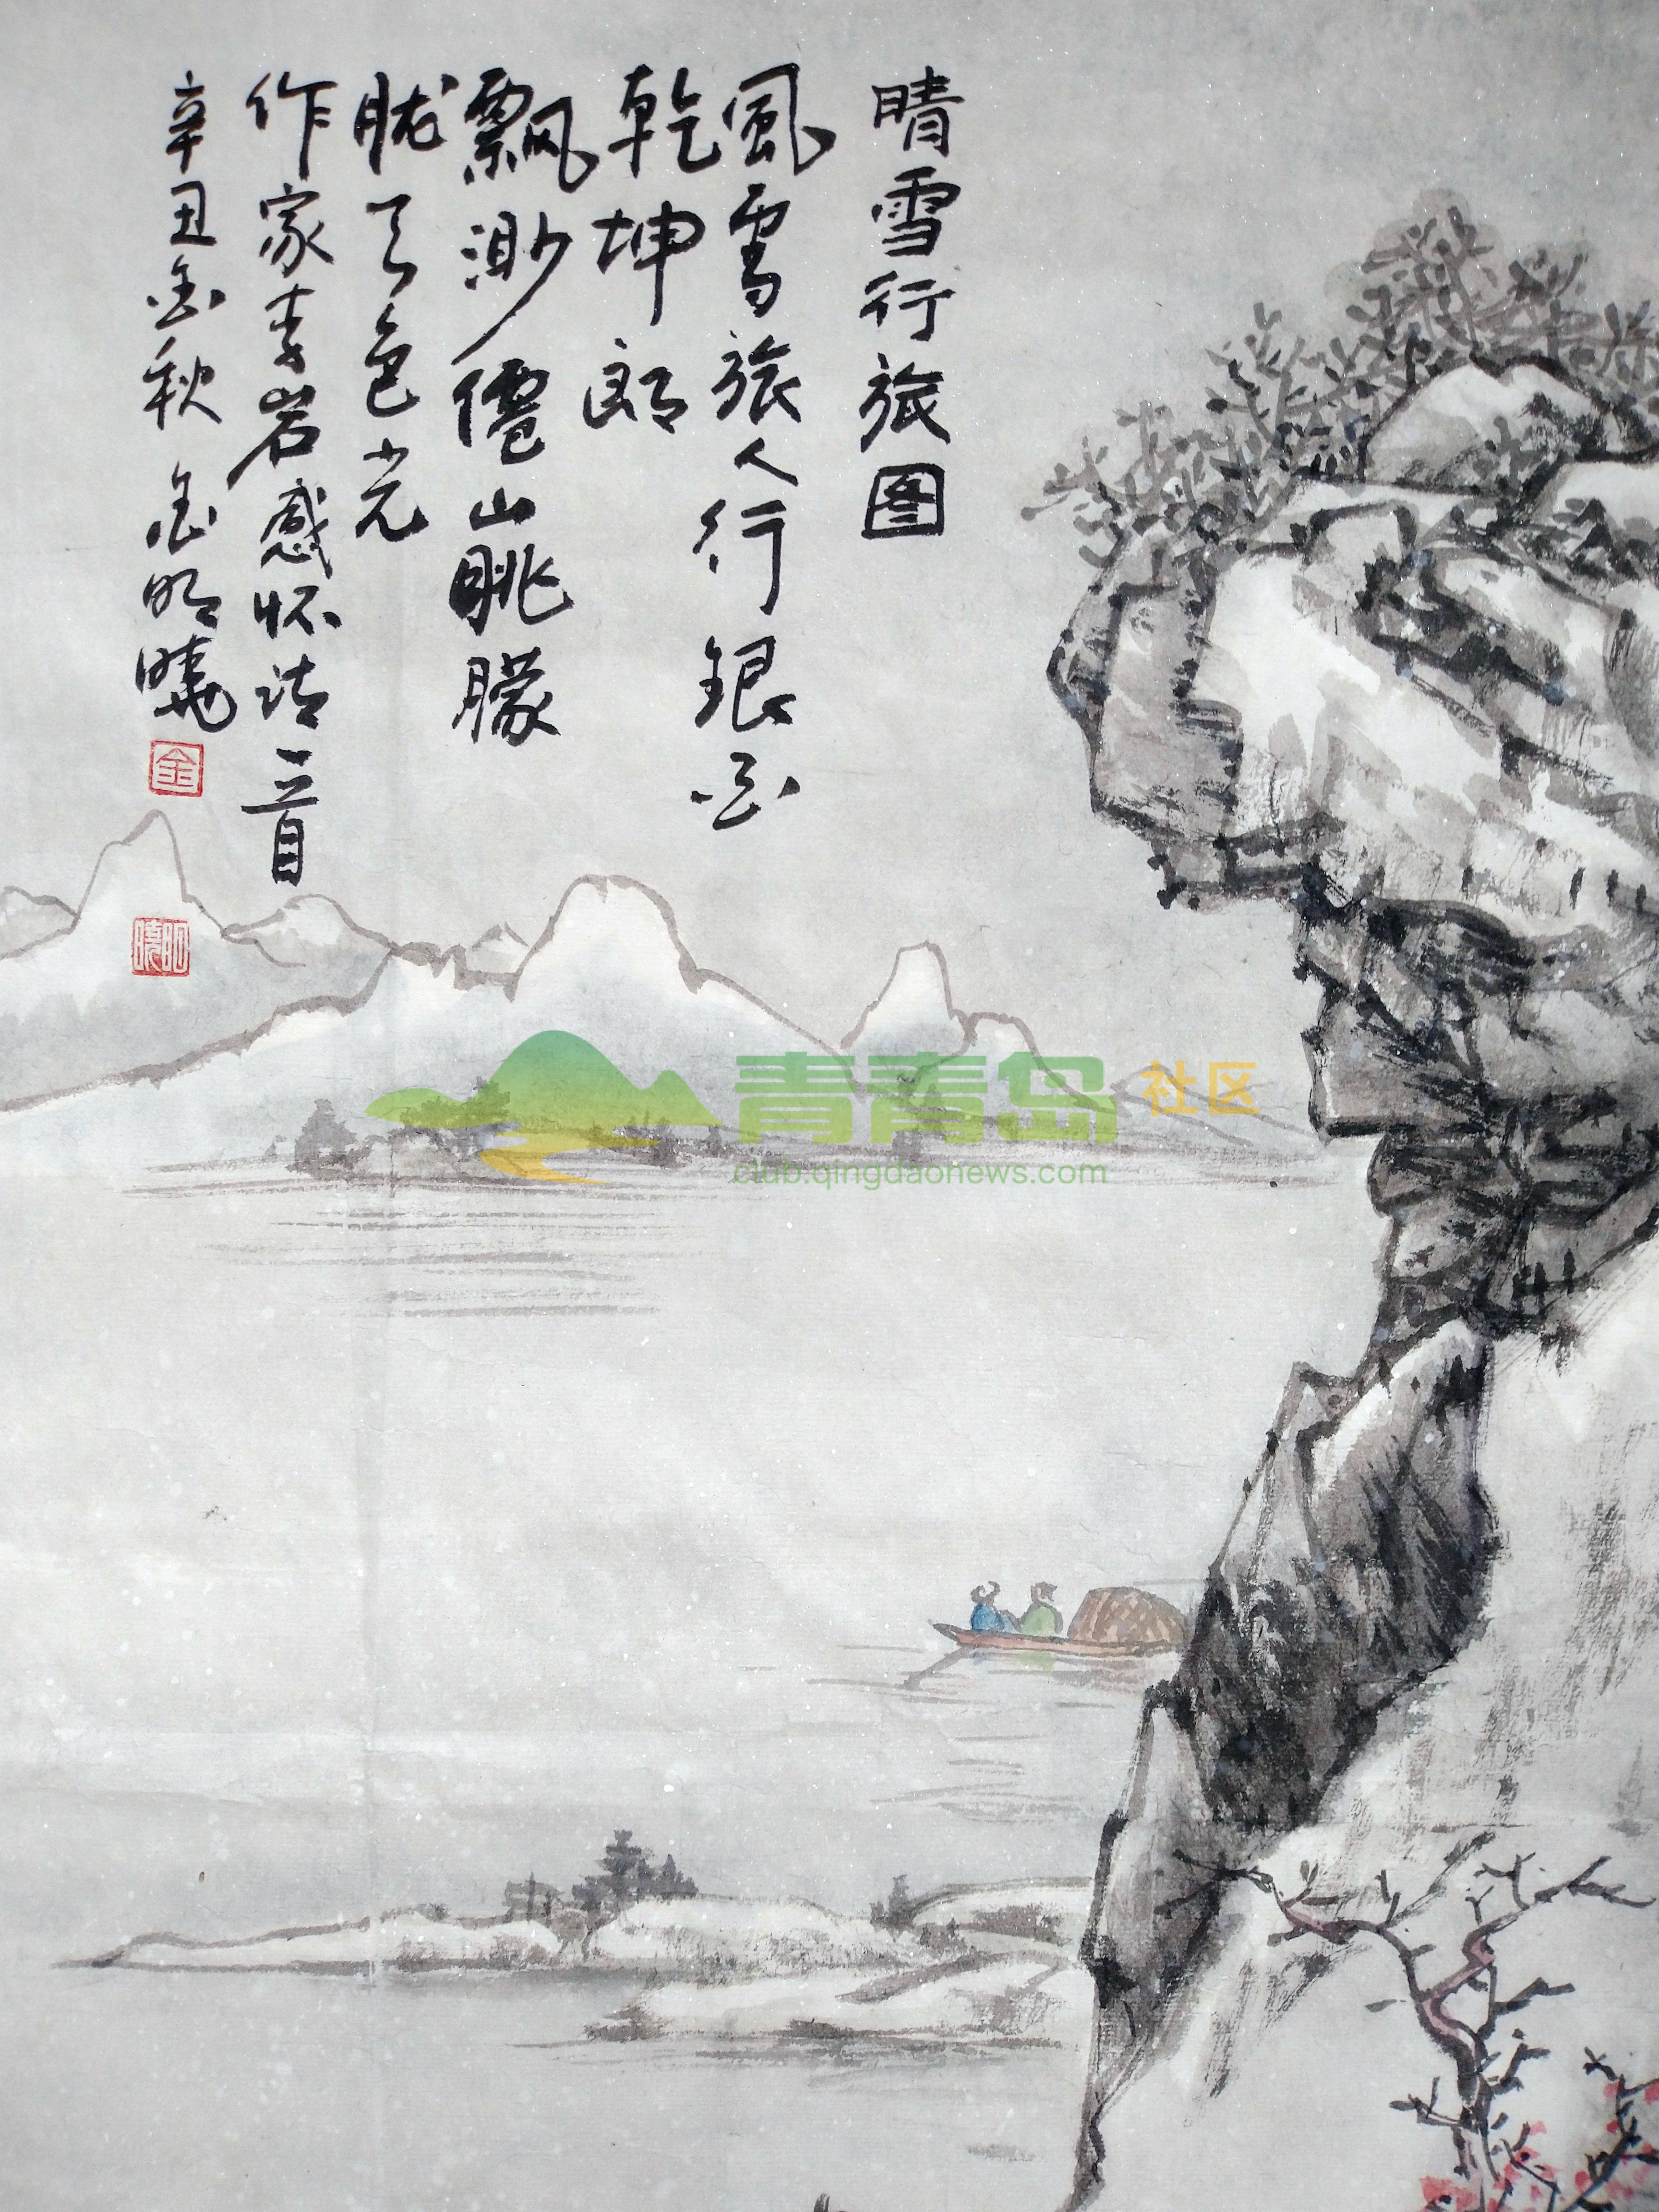 晴雪行旅图
風雪旅人行银白
乾坤郎
飘渺僊山眺朦
胧天色光
作家李岩感怀诗一首
辛丑金秋 金明曉
金
明曉
青青岛社区
club.qingdaonews.com